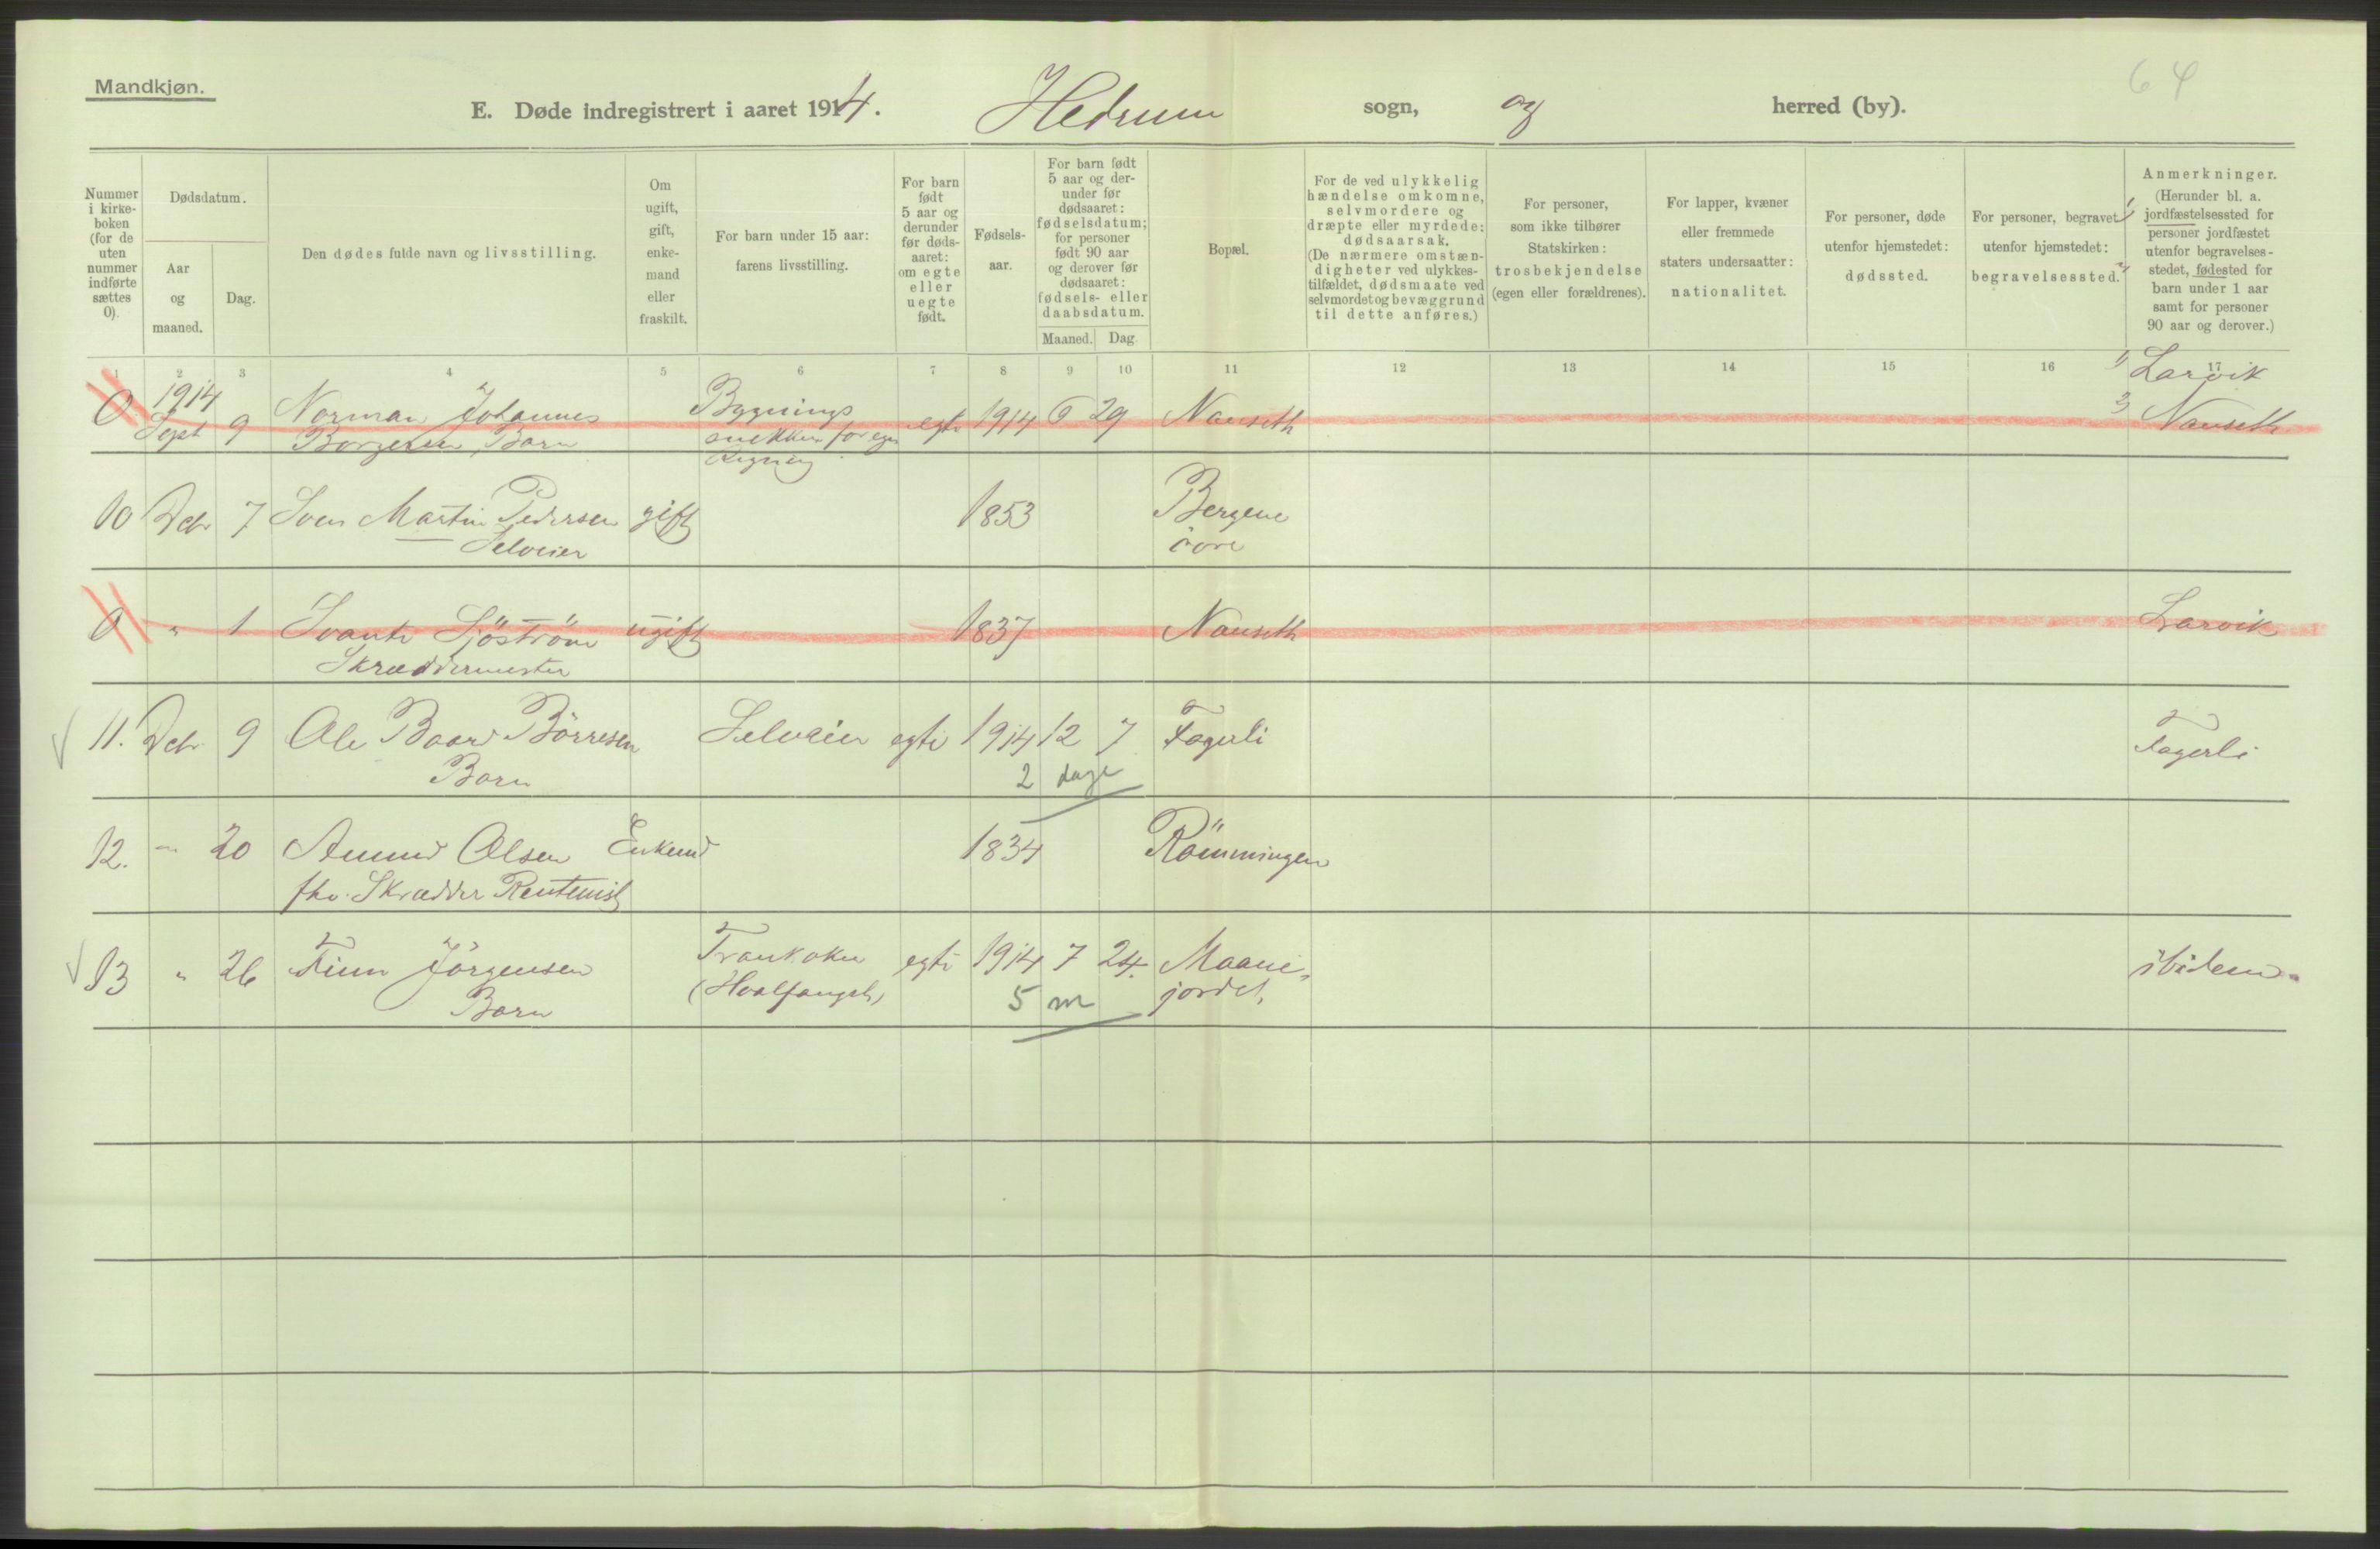 Mandkjøn.
64
E. Døde indregistrert i aaret 1914. Hedrum sogn, og herred (by).
Nummer i kirke- boken (for de uten nummer indførte sættes 0).
Dødsdatum.
Aar og maaned.
Dag.
Den dødes fulde navn og livsstilling.
Om ugift, gift, enke- mand eller fraskilt.
For barn under 15 aar: farens livsstilling.
For barn født 5 aar og derunder før døds- aaret: om egte eller uegte født.
Fødsels- aar.
For barn født 5 aar og der- under før dødsaaret: fødselsdatum; for personer født 90 aar og derover før dødsaaret: fødsels- eller daabsdatum.
Maaned. Dag
Bopæl.
For de ved ulykkelig hændelse omkomne, selvmordere og dræpte eller myrdede: dødsaarsak. (De nærmere omstæn- digheter ved ulykkes- tilfældet, dødsmaate ved selvmordet og bevæggrund til dette anføres.)
For personer, som ikke tilhører Statskirken: trosbekjendelse (egen eller forældrenes).
For lapper, kvæner eller fremmede staters undersaatter: nationalitet.
For personer, døde utenfor hjemstedet: dødssted.
For personer, begravet utenfor hjemstedet: begravelsessted.
Anmerkninger. (Herunder bl. a. jordfæstelsessted for personer jordfæstet utenfor begravelses- stedet, fødested for barn under 1 aar samt for personer 90 aar og derover.)
1 2 3 4 5 6 7 8 9 10 11 12 13 14 15 16 17
1914 Bygnings 1) Larvik
0 Sept 9 Norman Johannes snekker for egen egte 1914 6 29 Nanseth 2) Nanseth
Borgersen, Barn Regning
10 Debr 7 Sven Martin Pedersen gift 1853 Bergene
Selveier övre
0 " 1 Svante Sjöström ugift 1837 Nanseth Larvik
Skræddermester
11. Debr 9 Ole Baard Börresen Selveier egte 1914 12 7 Fagerli Fagerli
Barn 2 dage
12. " 20 Amund Olsen Enkemd 1834 Römmingen
fhv. Skrædder Rentenist
13 " 26 Finn Jörgensen Trankoker egte 1914 7 24. Maane-
Barn (Hvalfangst) 5 m jordet, ibidem